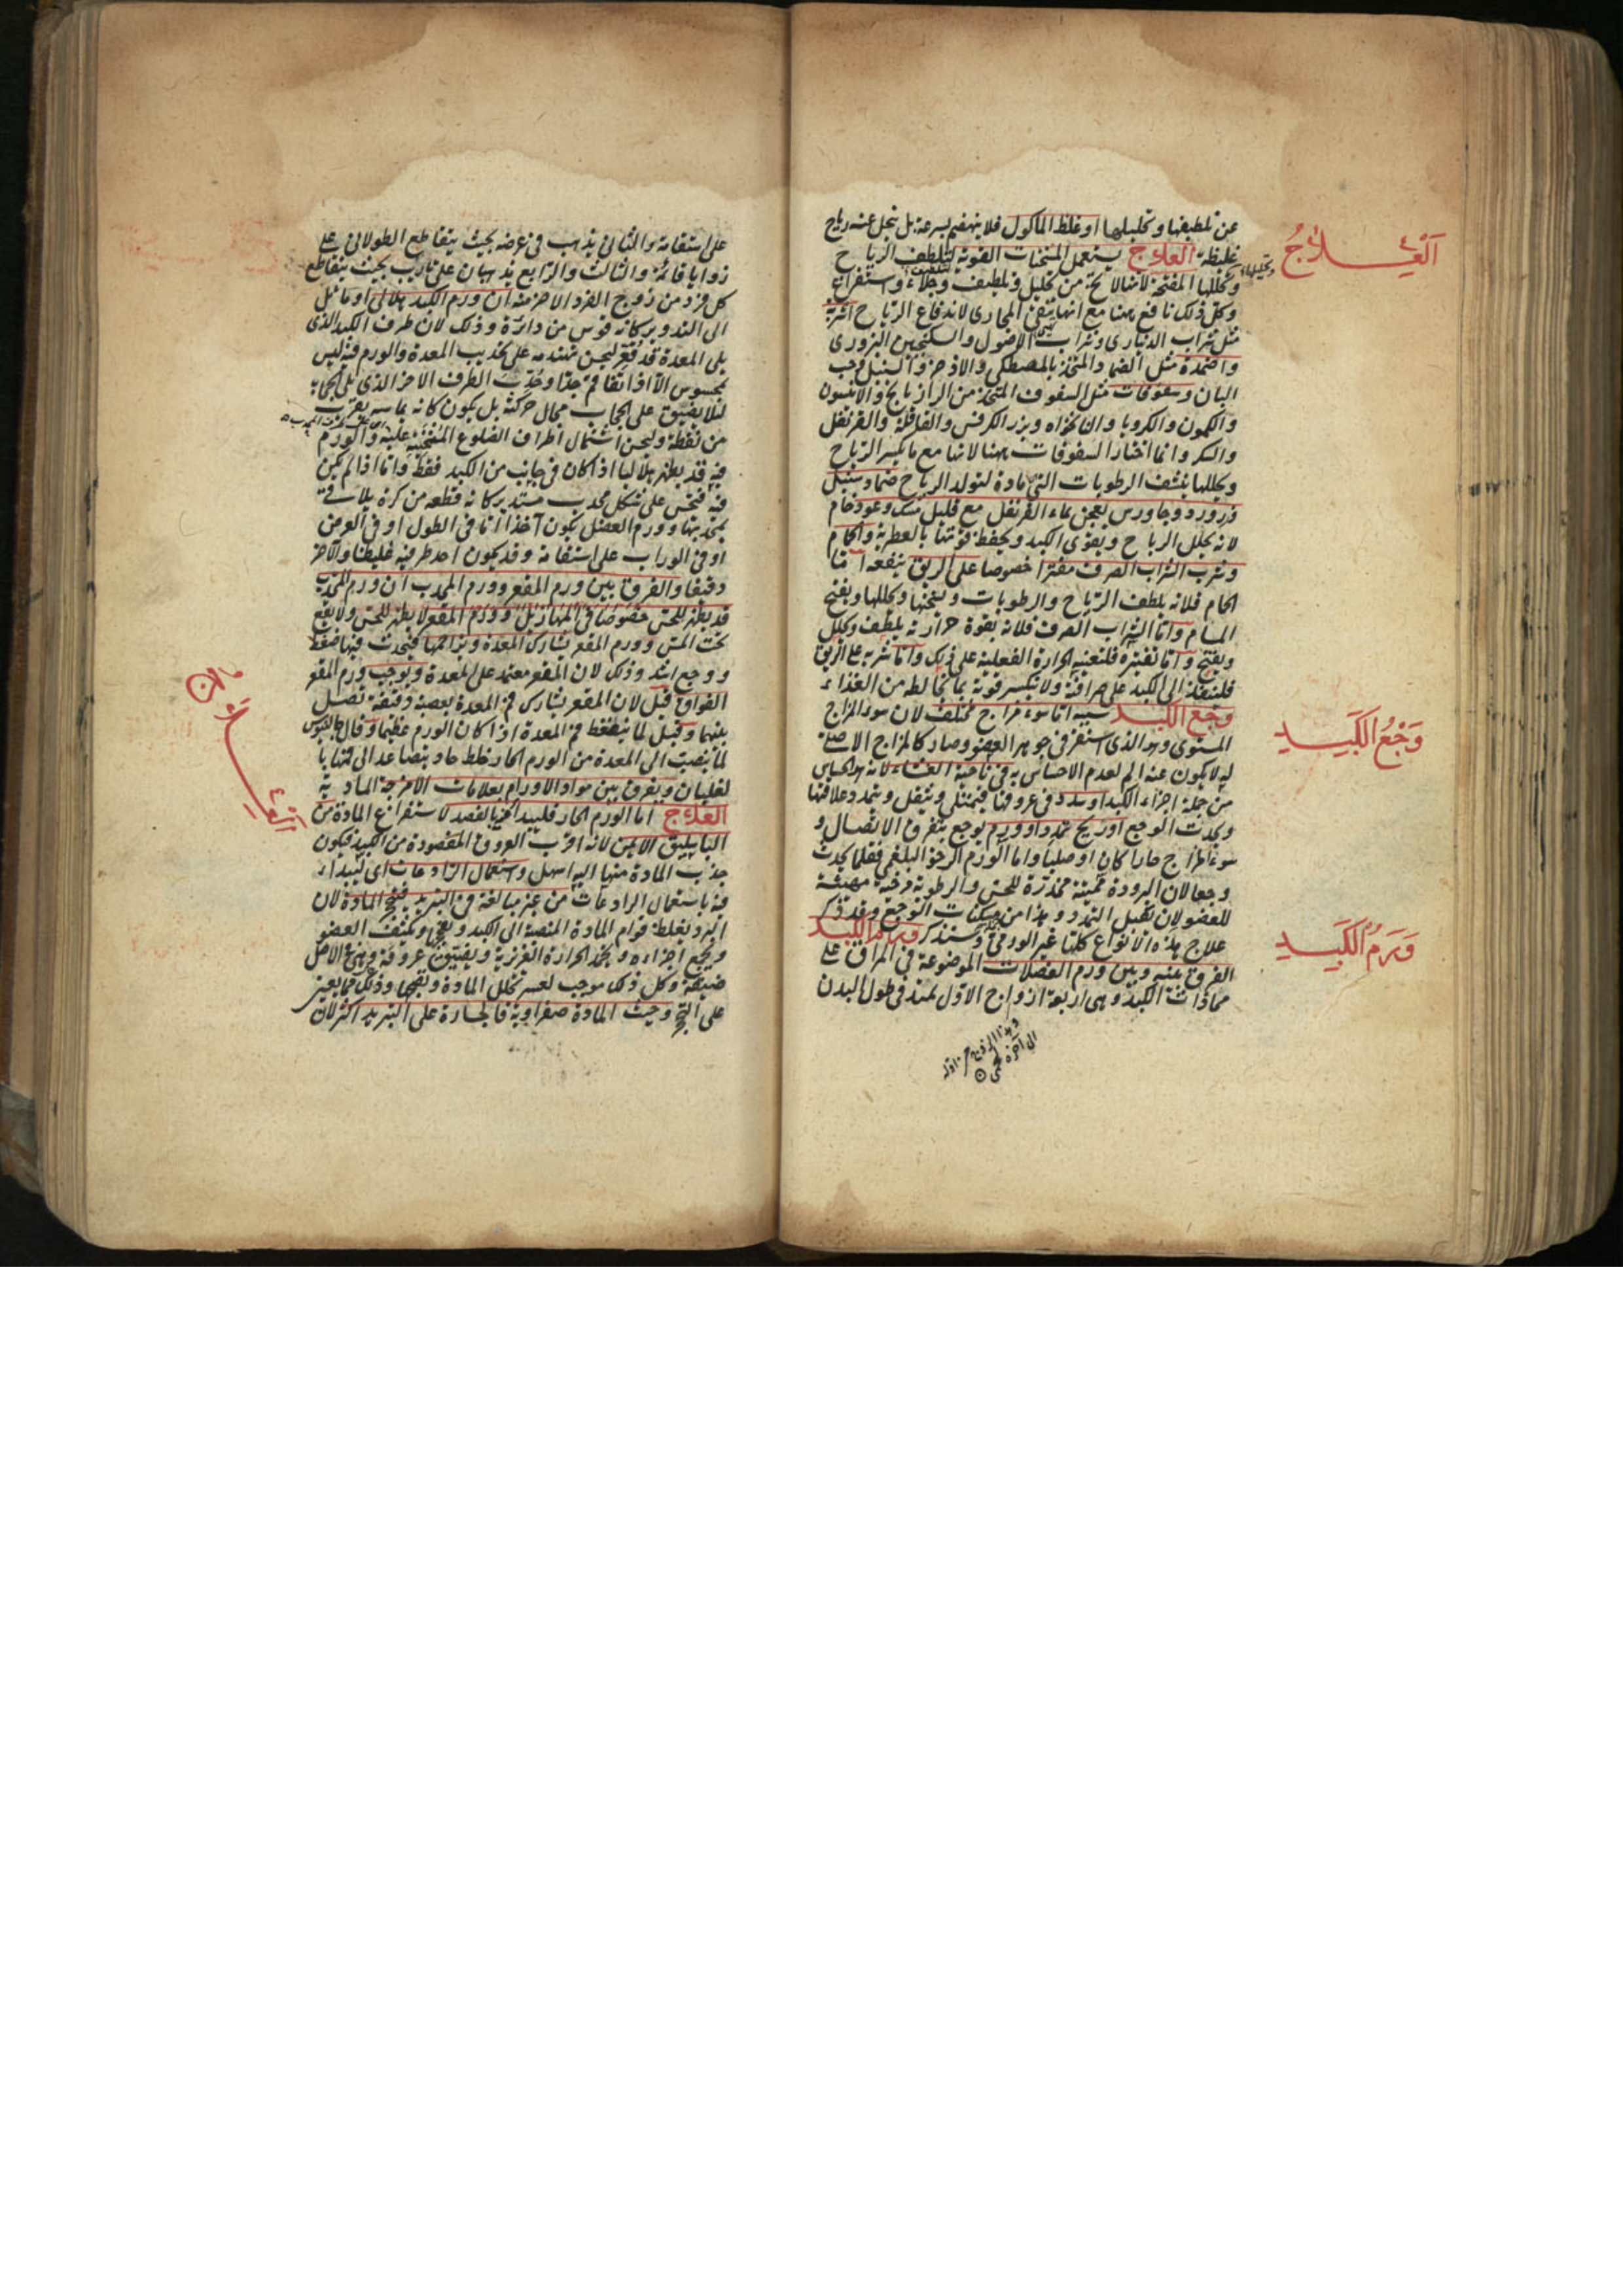 عن تلطيفها وتحليلها او غلظ المأكول فلا ينهضم بسرعة بل ينحل عنه رياح
غليظة العلاج يستعمل المسخنات القوية لتلطف الرياح
وتحللها المفتحة لانها لا تخ من تحليل وتلطيف وجلاء واستفراغ
وتحليلها
اَلْعِلَاجُ
وكل ذلك نافع ههنا مع انها تنقى المجارى لاندفاع الرياح اشربة
مثل شراب الدينارى وشراب الاصول والسكنجبين البزورى
واضمدة مثل الضماد المتخذ بالمصطكى والاذخر والسنبل وحب
البان وسفوفات مثل السفوف المتخذ من الرازيانج والانيسون
والكمون والكرويا والنانخواه وبزر الكرفس والقاقلة والقرنفل
والسكر وانما اختار السفوفات ههنا لانها مع ما يكسر الرياح
ويحللها ينشف الرطوبات التى مادة لتولد الرياح ضماد سنبل
وزرورد وجاورس يعجن بماء القرنفل مع قليل مسك وعود خام
لانه يحلل الرياح ويقوى الكبد ويحفظ قوتها بالعطرية والحمام
وشرب الشراب الصرف مفترا خصوصا على الريق ينفعه اما
الحمام فلانه يلطف الرياح والرطوبات ويسخنها ويحللها ويفتح
المسام واما الشراب الصرف فلانه بقوة حرارته يلطف ويحلل
ويفتح واما تفتيره فلتعينه الحرارة الفعلية على ذلك واما شربه على الريق
فلينفذ الى الكبد على صرافته ولا ينكسر قوته بما يخالطه من الغذاء
وجع الكبد سببه اما سوء مزاج مختلف لان سوء المزاج
وَجْعُ الكَبَدِ
المستوى وهو الذى استقر فى جوهر العضو وصار كالمزاج الاصلى
له لا يكون عنه الم لعدم الاحساس به فى ناحية الغشاء لانه هو الحساس
من جملة اجزاء الكبد او سدد فى عروقها فيمتلى ويثقل ويتمدد علاقتها
ويحدث الوجع او ريح تمدد او ورم يوجع بتفرق الاتصال و
سوء المزاج حارا كان او صلبا واما الورم الرخو البلغمى فقلما يحدث
وجعا لان البرودة مميتة مخدرة للحس والرطوبة مرخية مهيئة
للعضو لان تقبل التمدد وهذا من مسكنات الوجع وقد ذكر
علاج هذه الانواع كلها غير الورمى وسنذكر ورم الكبد
وَرَمُ الكَبَدِ
الفرق بينه وبين ورم العضلات الموضوعة فى المراق على
محاذات الكبد وهى اربعة ازواج الاول يمتد فى طول البدن
وهذا الزوج من اوله
الى آخره لحمى
على استقامة والثانى يذهب فى عرضه بحيث يتقاطع الطولانى على
زوايا قائمة والثالث والرابع يذهبان على تاريب بحيث يتقاطع
كل فرد من زوج الفرد الاخر منه ان ورم الكبد هلالى او مائل
الى التدوير كانه قوس من دائرة وذلك لان طرف الكبد الذى
يلى المعدة قد قعر ليحسن هندامه على تحديب المعدة والورم فيه ليس
بمحسوس الا اذا تفاقم جدا وحدب الطرف الاخر الذى يلى الحجاب
لئلا يضيق على الحجاب مجال حركته بل يكون كانه يماسه بقرب
من نقطة وليحسن اشتمال اطراف الضلوع المنحنية عليه والورم
فيه قد يظهر هلاليا اذا كان فى جانب من الكبد فقط واما اذا لم يكن
فيه فيحس على شكل محدب مستدير كانه قطعة من كرة يلاقى
بمحدبتها وورم العضل يكون آخذا اما فى الطول او فى العرض
او فى الوراب على استقامة وقد يكون احد طرفيه غليظا والآخر
دقيقا والفرق بين ورم المقعر وورم المحدب ان ورم المحدب
قد يظهر للحس خصوصا فى المهازيل وورم المقعر لا يظهر للحس ولا يقع
تحت المس وورم المقعر يشارك المعدة ويزاحمها فيحدث فيها ضغط
ووجع اشد وذلك لان المقعر معتمد على المعدة ويوجب ورم المقعر
الفواق قيل لان المقعر يشارك فم المعدة بعصبة دقيقة تصل
بينهما وقيل لما ينضغط فم المعدة اذا كان الورم عظيما وقال جالينوس
لما ينصب الى المعدة من الورم الحار خلط حاد يتصاعد الى فمها با
لغليان ويفرق بين مواد الاورام بعلامات الامزجة المادية
العلاج اما الورم الحار فليبدأ فيه بالفصد لاستفراغ المادة من
الباسليق الايمن لانه اقرب العروق المقصودة من الكبد فيكون
جذب المادة منها اليه اسهل واستعمال الرادعات اى ليبداء
فيه باستعمال الرادعات من غير مبالغة فى التبريد فتفجج المادة لان
البرد يغلظ قوام المادة المنصبة الى الكبد ويفججها ويكثف العضو
ويجمع اجزاءه ويخمد الحرارة الغريزية ويضيق عروقه وهى فى الاصل
ضيقة وكل ذلك موجب لعسر تحلل المادة ونضجها وذلك مما يعين
على التحجر وحيث المادة صفراوية فالجسارة على التبريد اكثر لان